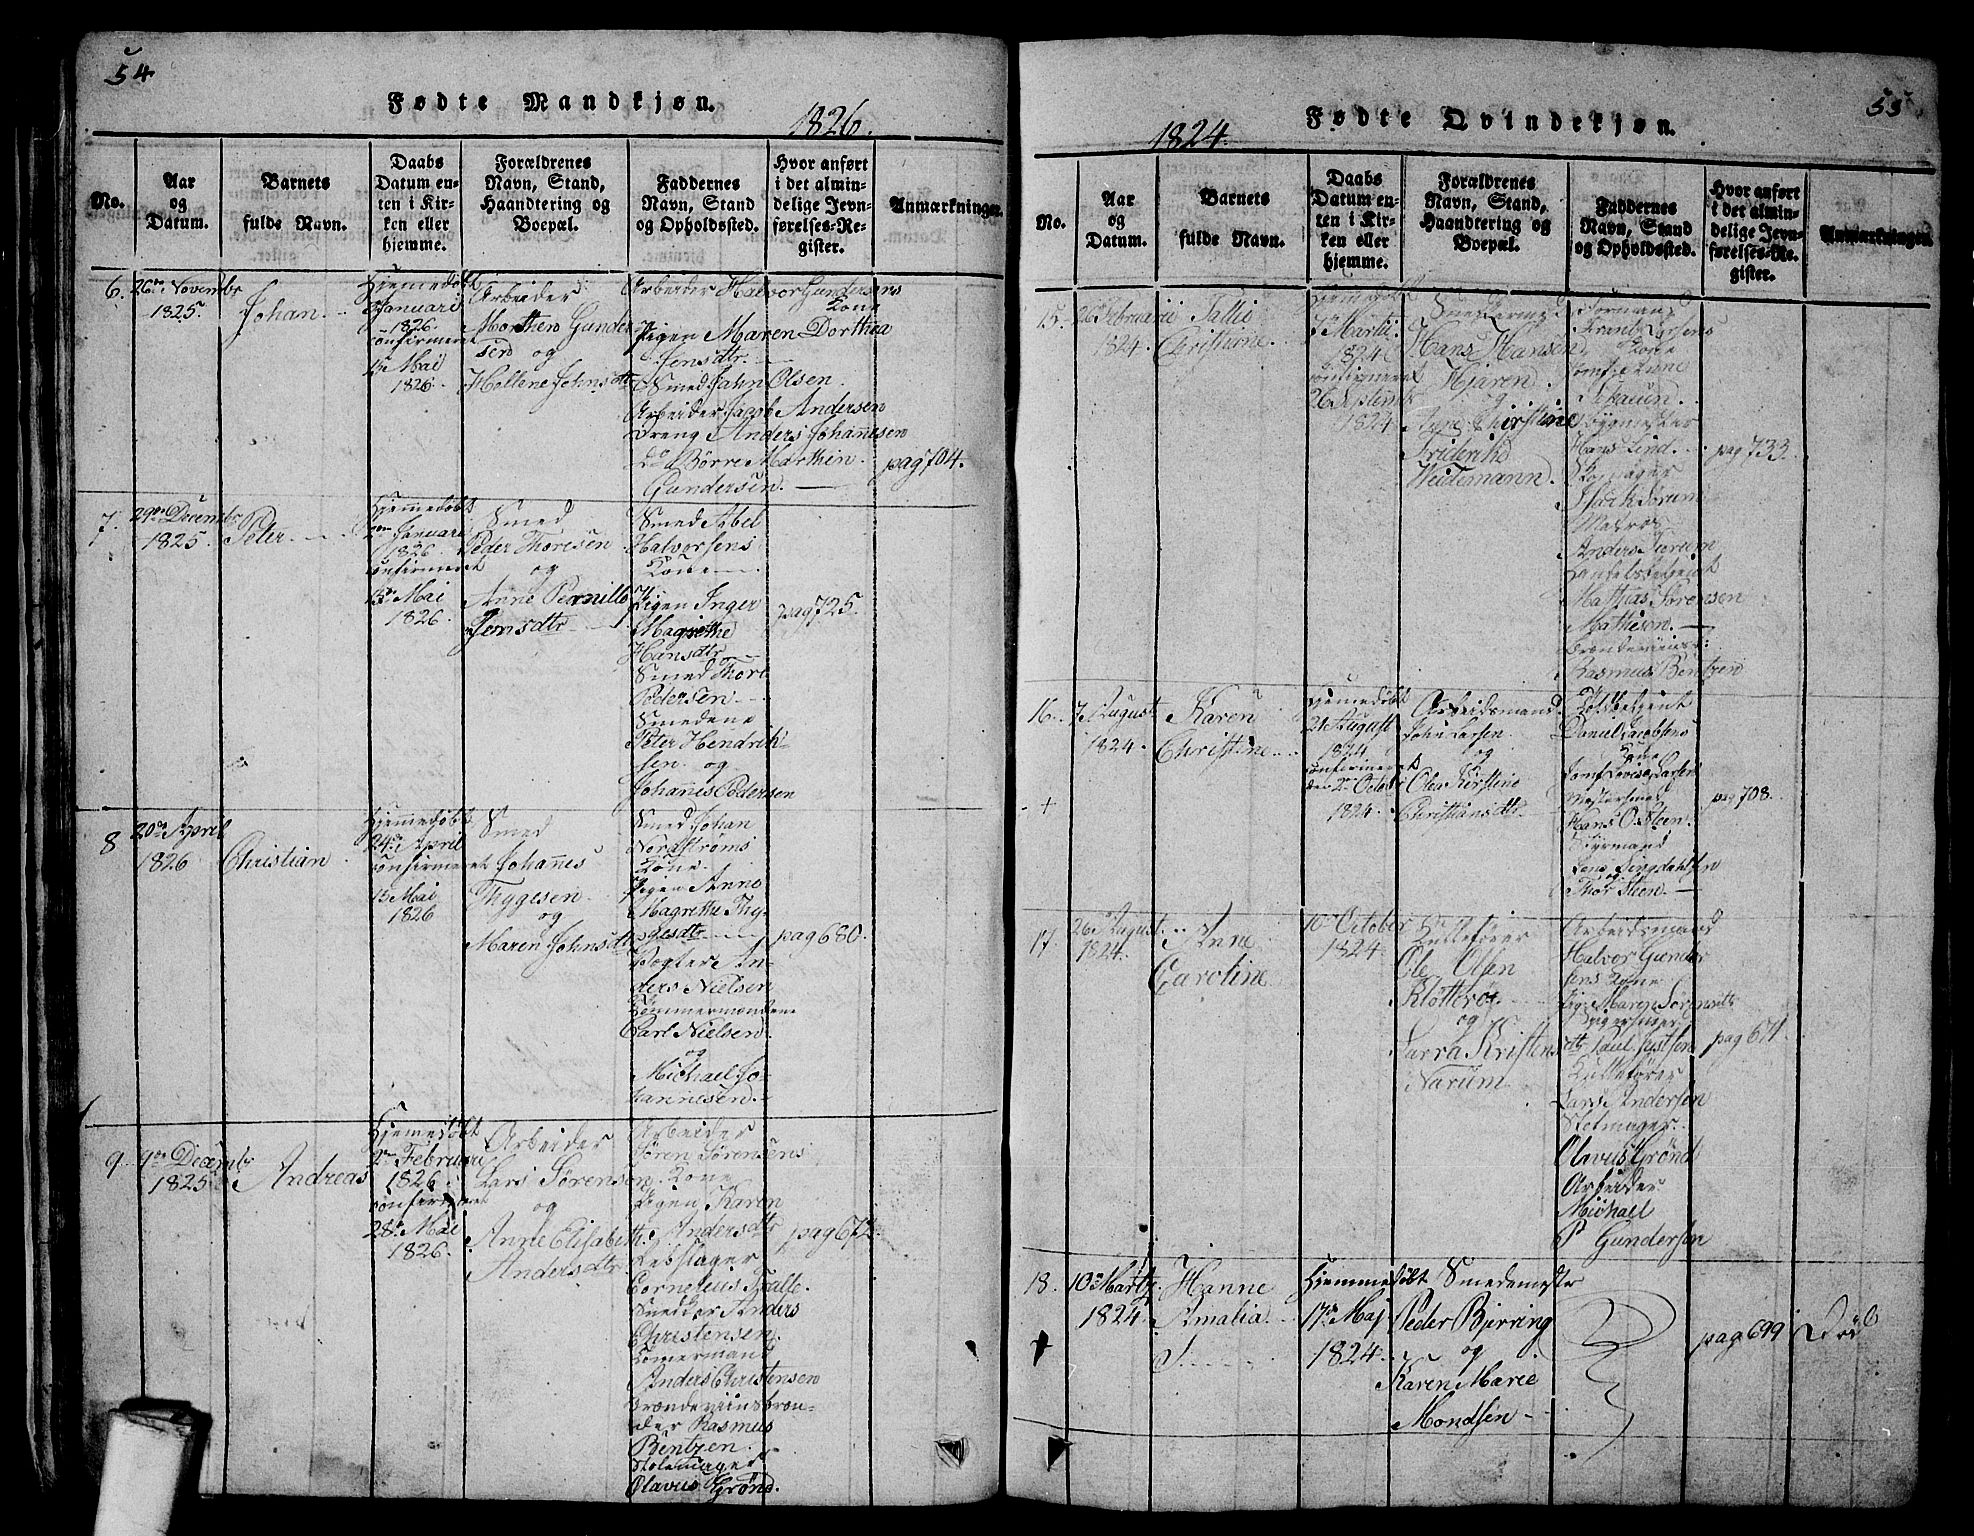 54
Fødte Mandkjøn.
1826.
No.
Aar
og
Datum.
Barnets
fulde Navn.
Daabs
Datum en-
ten i Kir-
ken eller
hjemme.
Forældrenes
Navn, Stand,
Haandtering og
Boepæl.
Faddernes
Navn, Stand
og Opholdssted.
Hvor anført
i det almin-
delige Jevn-
førelses-Re-
gister.
Anmærkninger.
6.
26de Novembr
1825.
Johan.
Hjemedøbt
Januari
1826.
confirmeret
Mai
1826.
Arbeider
Morthen Gunder
sen og
Hellene Johnsdtr
Arbeider Halvor Gundersens
Kone
Pigen Maren Dorthea
Jensdtr.
Smed John Olsen.
Arbeider Jacob Andersen
Dreng Anders Johannesen
do Børre Marthin
Gundersen.
pag 704.
7.
29de Decembr
1825.
Peter
Hjemmedøbt
Januari
1826.
confirmeret
15de Mai
1826.
Smed
Peder Thoresen
og
Anne Pernille
Jensdtr
Smed Abel
Halvorsens
Kone
Pigen Inger
Magrethe
Hansdtr
Smed Thore
Pedersen
Smedene
Peter Hendrik-
sen og
Johanes Pedersen
pag 725.
8
20de April
1826
Christian
Hjemmedøbt
24de April
confirmeret
15 Mai
1826
Smed
Johannes
Thygesen
og
Maren Johnsdtr
Smed Johan
Nordstrøms
Kone.
Pigen Anne
Magrethe Thy-
gesdtr
Fogter An-
ders Nielsen
Tømmermændene
Carl Nielsen
og
Michael Jo-
hannesen.
pag 680.
9
9de Decembr
1825.
Andreas
Hjemedøbt
2de Februari
1826
confirmeret
28de Mai
1826.
Arbeider
Lars Sørensen
og
Anne Elisabeth
Andersdtr
Arbeider
Søren Sørensens
Kone
Pigen Karen
Andersdtr
Rebslager
Cornelius Tralle
Snedker Anders
Christensen
Tømermand
Anders Christensen
Brændeviinsbræn-
der Rasmus
Bentzen.
Stolemager
Olavus Grønd.
pag 672.
55
Fødte Qvindekjøn.
1824.
No.
Aar
og
Datum.
Barnets
fulde Navn.
Daabs
Datum en-
ten i Kir-
ken eller
hjemme.
Forældrenes
Navn, Stand,
Haandtering og
Boepæl.
Faddernes
Navn, Stand
og Opholdssted.
Hvor anført
i det almin-
delige Jevn-
førelses-Re-
gister.
Anmærkninger.
15.
26de Februarii
1824
Tallie
Christiane
Hjemedøbt
7 Martii
1824
confirmeret
26 Septembr
1824
Hans Hansen
Hjaren
og
Ane Christine
Friderike
Weidemann.
Formand
Larsens
Kone
Schauen.
Bygmester
Hans Lind.
Matros
Anders Sørum
Handelsbetjent
Mathias Sørensen
Mathiesen.
Rasmus Bentzen
pag 733.
16.
7 August
1824.
Karen
Christine
Hjemedøbt
21 August
1824
confirmeret
den 2de Octobr
1824.
Arbeidsmand
John Larsen
og
Olea Kirstine
Christiansdtr
Toldbetjent
Daniel Jacobsens
Kone
Jomf. Lovise Larsen
Mestersmed
Hans O. Steen.
Styrmand
Jens Ringdahlsen
og
Thor Steen.
pag 708.
+
17.
26de August
1824.
Anne
Caroline
10de October
1824.
Kullekører
Ole Olsen
Kløtterøe
og
Sarra Kristens
dtr
Narum
Arbeidsmand
Halvor Gunder
sens Kone
Pig. Maren Sørensdtr
Spigersmed
Poul Justsen
Kullekører
Lars Andersen
Stolmager
Olavus Grønd
Arbeider
Michael
P Gundersen
pag 671.
18.
10de Martz
1824.
Hanne
Amalia
Hjemmedøbt
17de Maj
1824.
Smedemester
Peder Bjerring
og
Karen Marie
Mondsen
pag 699
Død